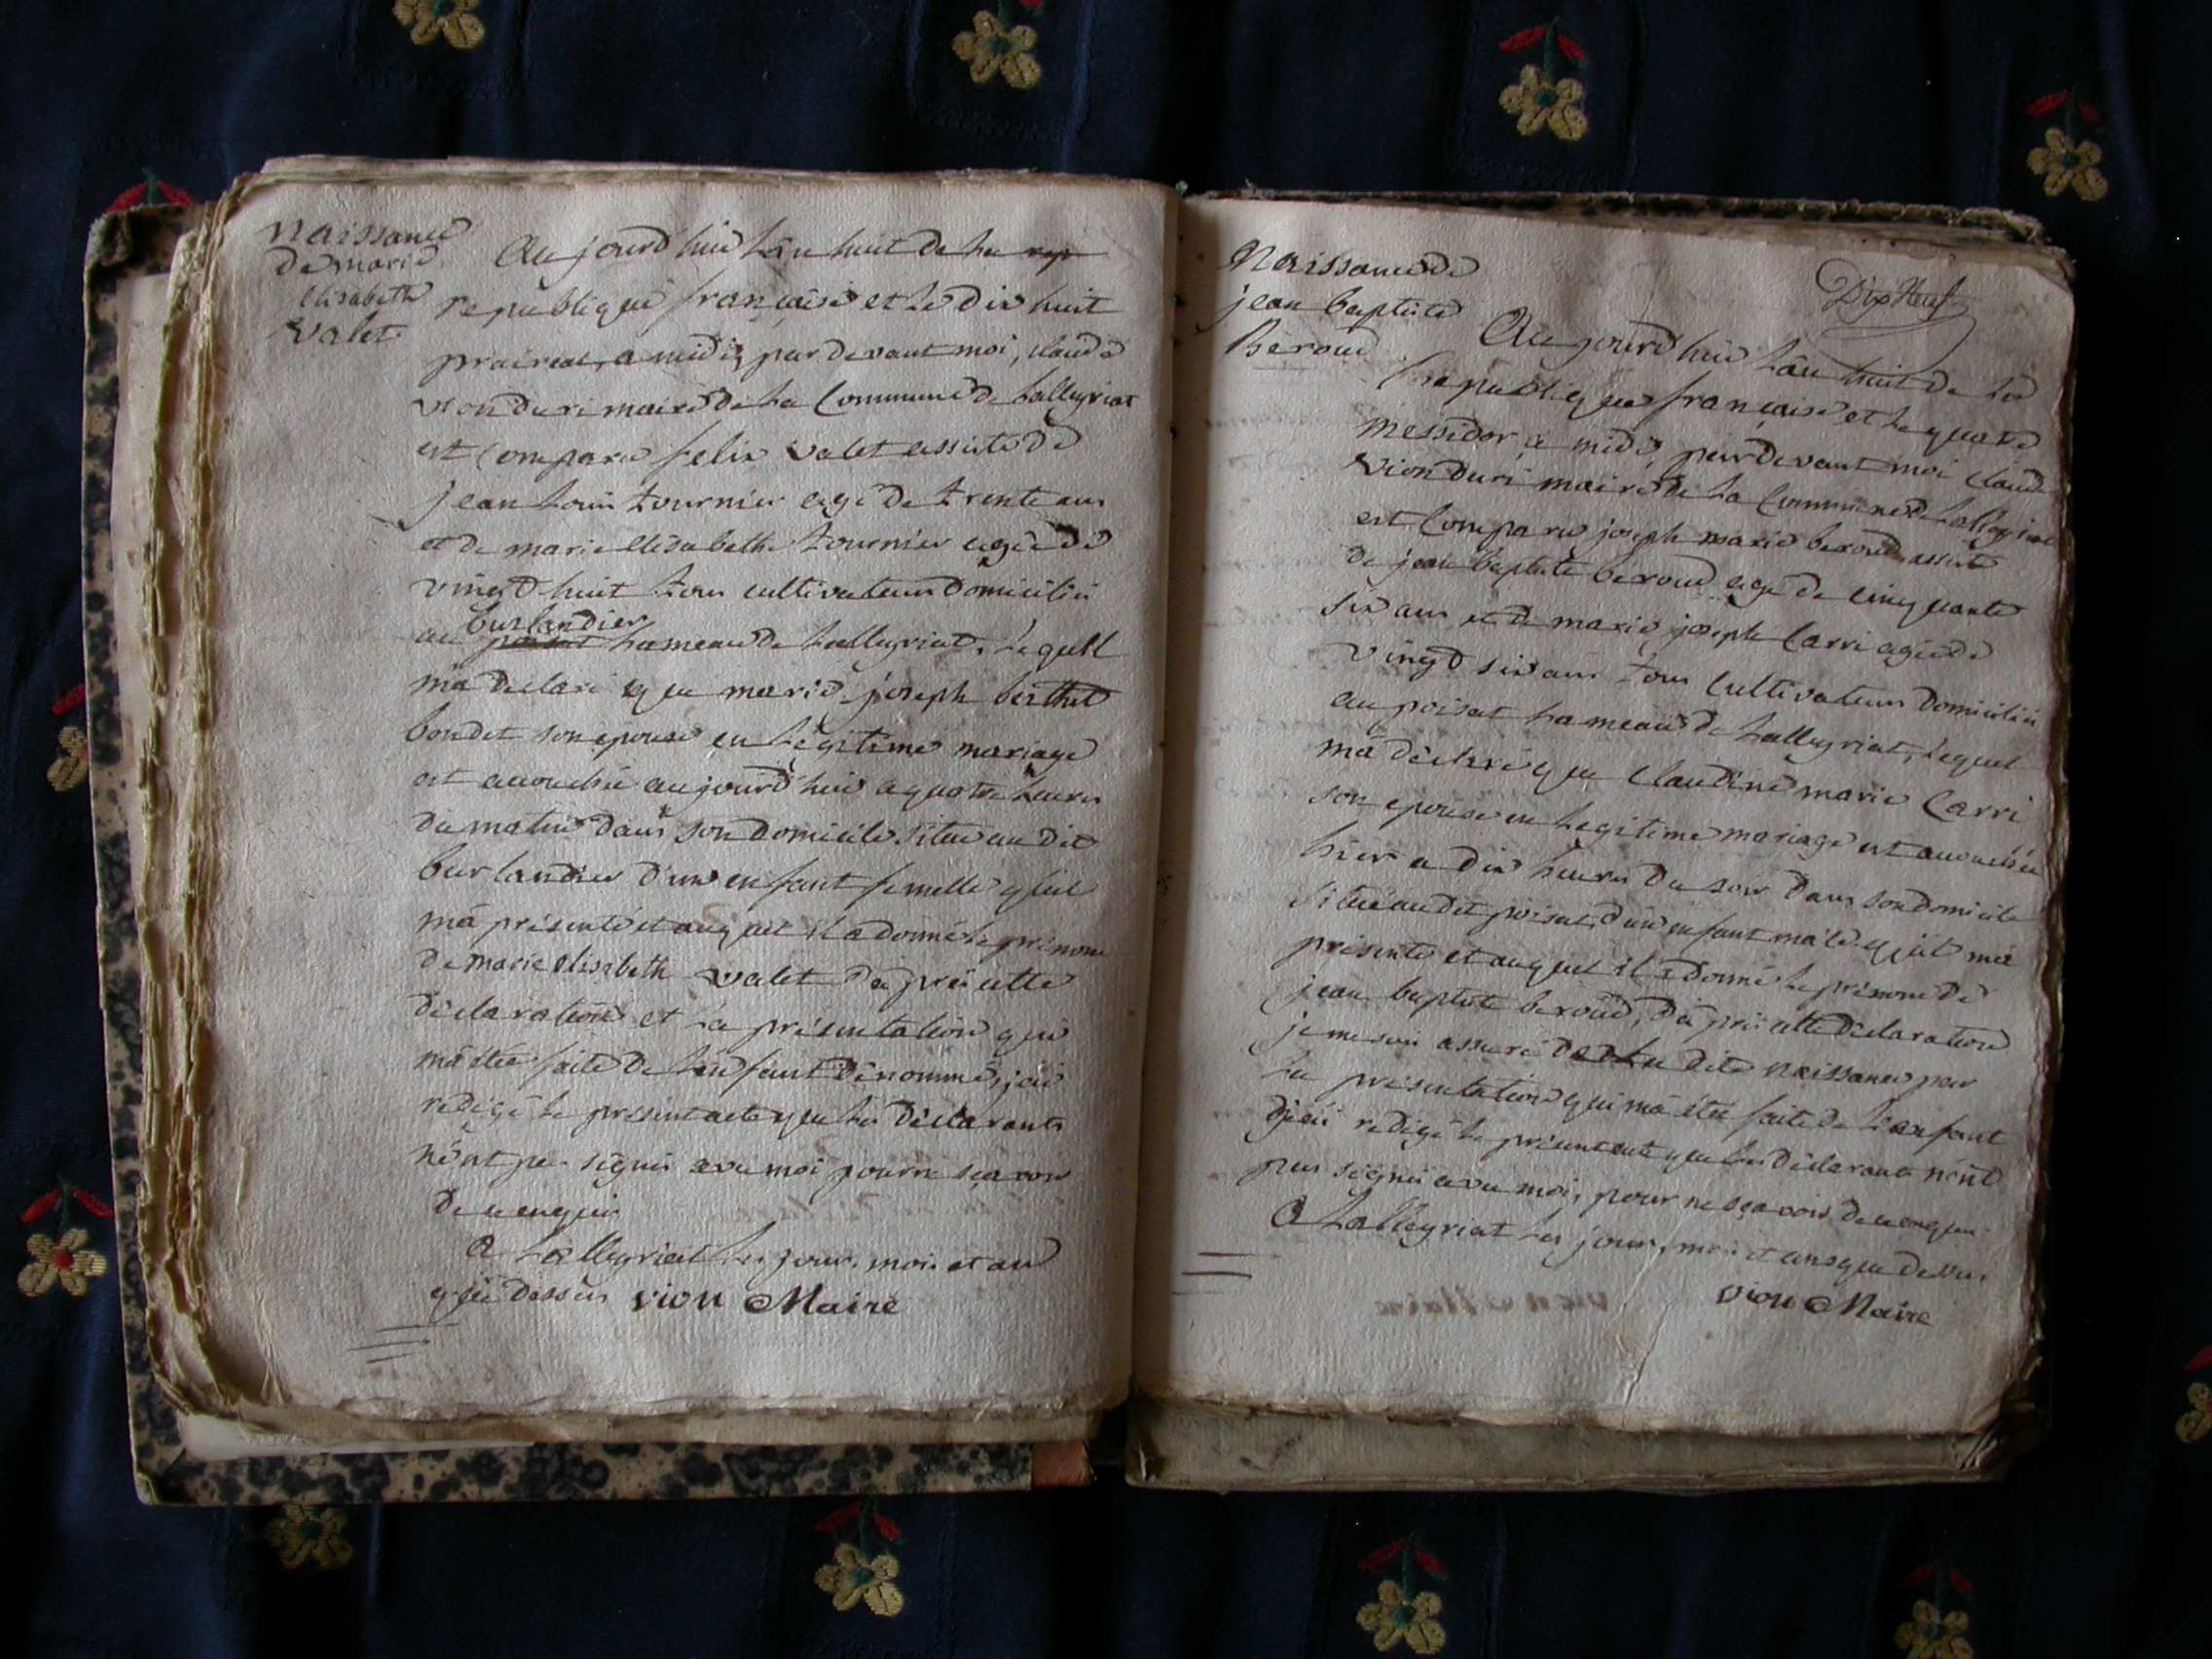 Naissance
de marie
elisabeth
valet
Au jourd'hui l'an huit de la rep
republique francaise et le dix huit
praireal, a midi, par devant moi, claude
vion duri maire de la Commune de Lalleyriat
est Comparu felix valet assisté de
jean louis tournier agé de trente ans
et de marie elisabethe tournier agée de
vingt huit tous cultivateurs domiciliés
burlandier
au poisat hameau de Lalleyriat, lequell
m'a declaré que marie joseph berthet
bondet son epouse en legitime mariage
est accouchée aujourd'hui a quatre heures
du matin dans son domicile situé au dit
burlandier d'un enfant femelle qu'il
m'a présenté et auquel il a donné le prénom
de marie elisabeth valet d'après cette
déclaration et la présentation qui
m'a étée faite de l'enfant dénommé, j'ai
redigé le present acte que les déclarants
n'ont pas signés avec moi pour ne sçavoir
de ce enquis
A Lalleyriat les jour, mois et an
que dessus vion Maire
Naissance de
jean baptiste
Beroud
Dix Neuf
Au jourd'hui l'an huit de la
republique française et le quatre
messidor, a midi, par devant moi Claude
vion duri maire de la Commune de Lalleyriat
est Comparu joseph marie beroud, assisté
de jean baptiste beroud agé de cinquante
six ans et de marie joseph Carri agée de
vingt six ans tous Cultivateurs domiciliés
au poisat hameau de Lalleyriat, lequel
m'a déclaré que Claudine marie Carri
son epouse en legitime mariage est accouchée
hier a dix heures du soir dans son domicile
situé au dit poisat, d'un enfant mâle qu'il m'a
présenté et auquel il a donné le prénom de
jean baptiste beroud, d'après cette déclaration
je me suis assuré de la dite naissance par
la présentation qui m'a étée faite de l'enfant
j'ai redigé le présent acte que les déclarants n'ont
pas signés avec moi, pour ne sçavoir de ce enquis
A Lalleyriat les jour, mois et ans que dessus
vion Maire